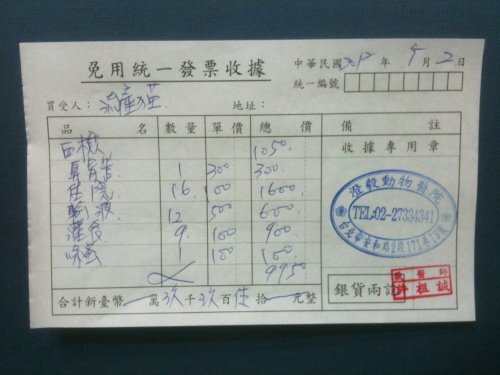 免用統一發票收據
中華民國 年 9月2日
統一編號
買受人：流浪貓
地址：
品名 數量 單價 總價 備註
血檢 1050.
1 300 300.
住院 16 100 1600
輸液 12 500 600
灌食 9 100 900
1 100 100.
9950
收據專用章
澄毅動物醫院
TEL:02-27334341
台北市安和路2段171巷18號
合計新臺幣 萬玖千玖百伍拾 元整
銀貨兩訖
許祖誠